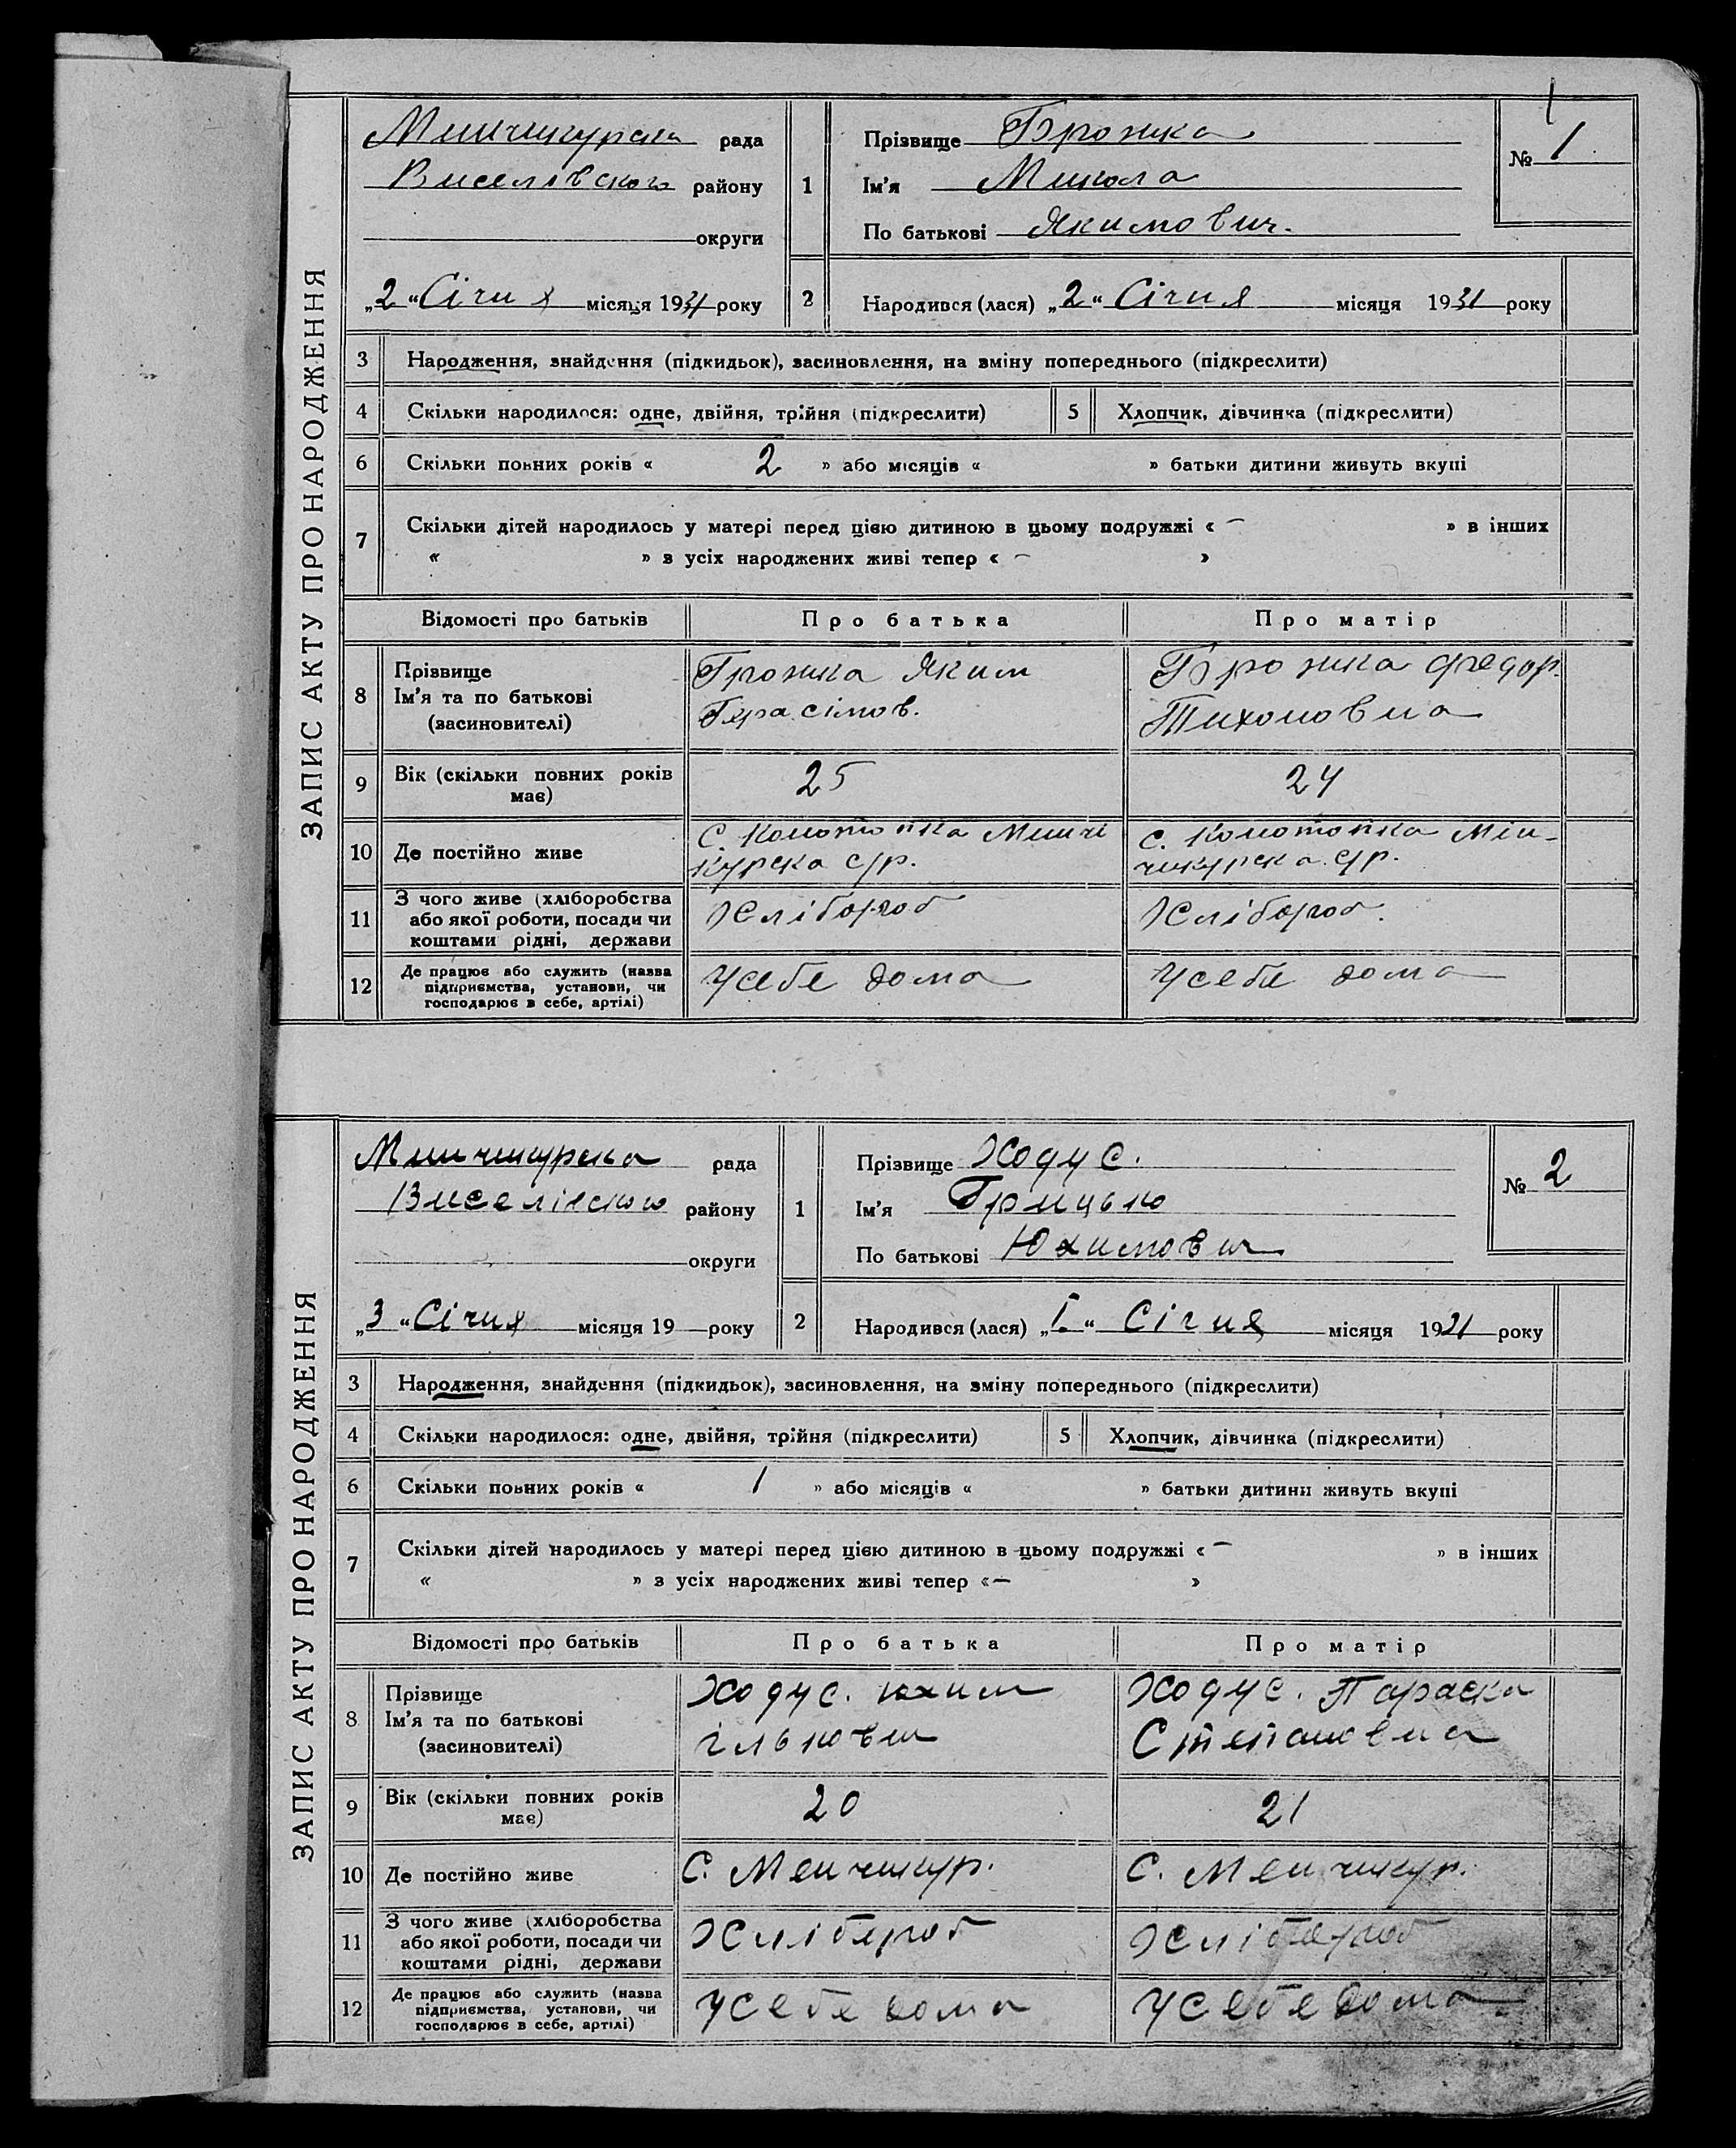 ЗАПИС АКТУ ПРО НАРОДЖЕННЯ
Минчикурска рада
Виселівского району
округи
„2“ Січня місяця 1931 року
1
Прізвище Грожка
Ім'я Микола
По батькові Якимович.
1
№ 1
2
Народився (лася) „2“ Січня місяця 1931 року
3 Народження, знайдення (підкидьок), засиновлення, на зміну попереднього (підкреслити)
4 Скільки народилося: одне, двійня, трійня (підкреслити) 5 Хлопчик, дівчинка (підкреслити)
6 Скільки повних років « 2 » або місяців « » батьки дитини живуть вкупі
7 Скільки дітей народилось у матері перед цією дитиною в цьому подружжі « – » в інших
« » з усіх народжених живі тепер « – »
Відомості про батьків Про батька Про матір
8 Прізвище
Ім'я та по батькові
(засиновителі)
Грожка Яким
Герасімов.
Грожка Федор.
Тихоновна
9 Вік (скільки повних років
має)
25
24
10 Де постійно живе
С. Конотопка Минчі
курска с/р.
С. Конотопка Мін-
чикурска с/р.
11 З чого живе (хліборобства
або якої роботи, посади чи
коштами рідні, держави
Хлібороб
Хлібороб.
12 Де працює або служить (назва
підприємства, установи, чи
господарює в себе, артілі)
Усебе дома
Усебе дома
ЗАПИС АКТУ ПРО НАРОДЖЕННЯ
Минчикурска рада
Виселівского району
округи
„3“ Січня місяця 19 року
1
Прізвище Ходус.
Ім'я Грицько
По батькові Юхимович
№ 2
2
Народився (лася) „1.“ Січня місяця 1931 року
3 Народження, знайдення (підкидьок), засиновлення, на зміну попереднього (підкреслити)
4 Скільки народилося: одне, двійня, трійня (підкреслити) 5 Хлопчик, дівчинка (підкреслити)
6 Скільки повних років « 1 » або місяців « » батьки дитини живуть вкупі
7 Скільки дітей народилось у матері перед цією дитиною в цьому подружжі « – » в інших
« » з усіх народжених живі тепер « – »
Відомості про батьків Про батька Про матір
8 Прізвище
Ім'я та по батькові
(засиновителі)
Ходус. Юхим
Ількович
Ходус. Параска
Степановна
9 Вік (скільки повних років
має)
20
21
10 Де постійно живе
С. Менчикур.
С. Менчикур.
11 З чого живе (хліборобства
або якої роботи, посади чи
коштами рідні, держави
Хлібороб
Хлібороб
12 Де працює або служить (назва
підприємства, установи, чи
господарює в себе, артілі)
Усебе дома
Усебе дома